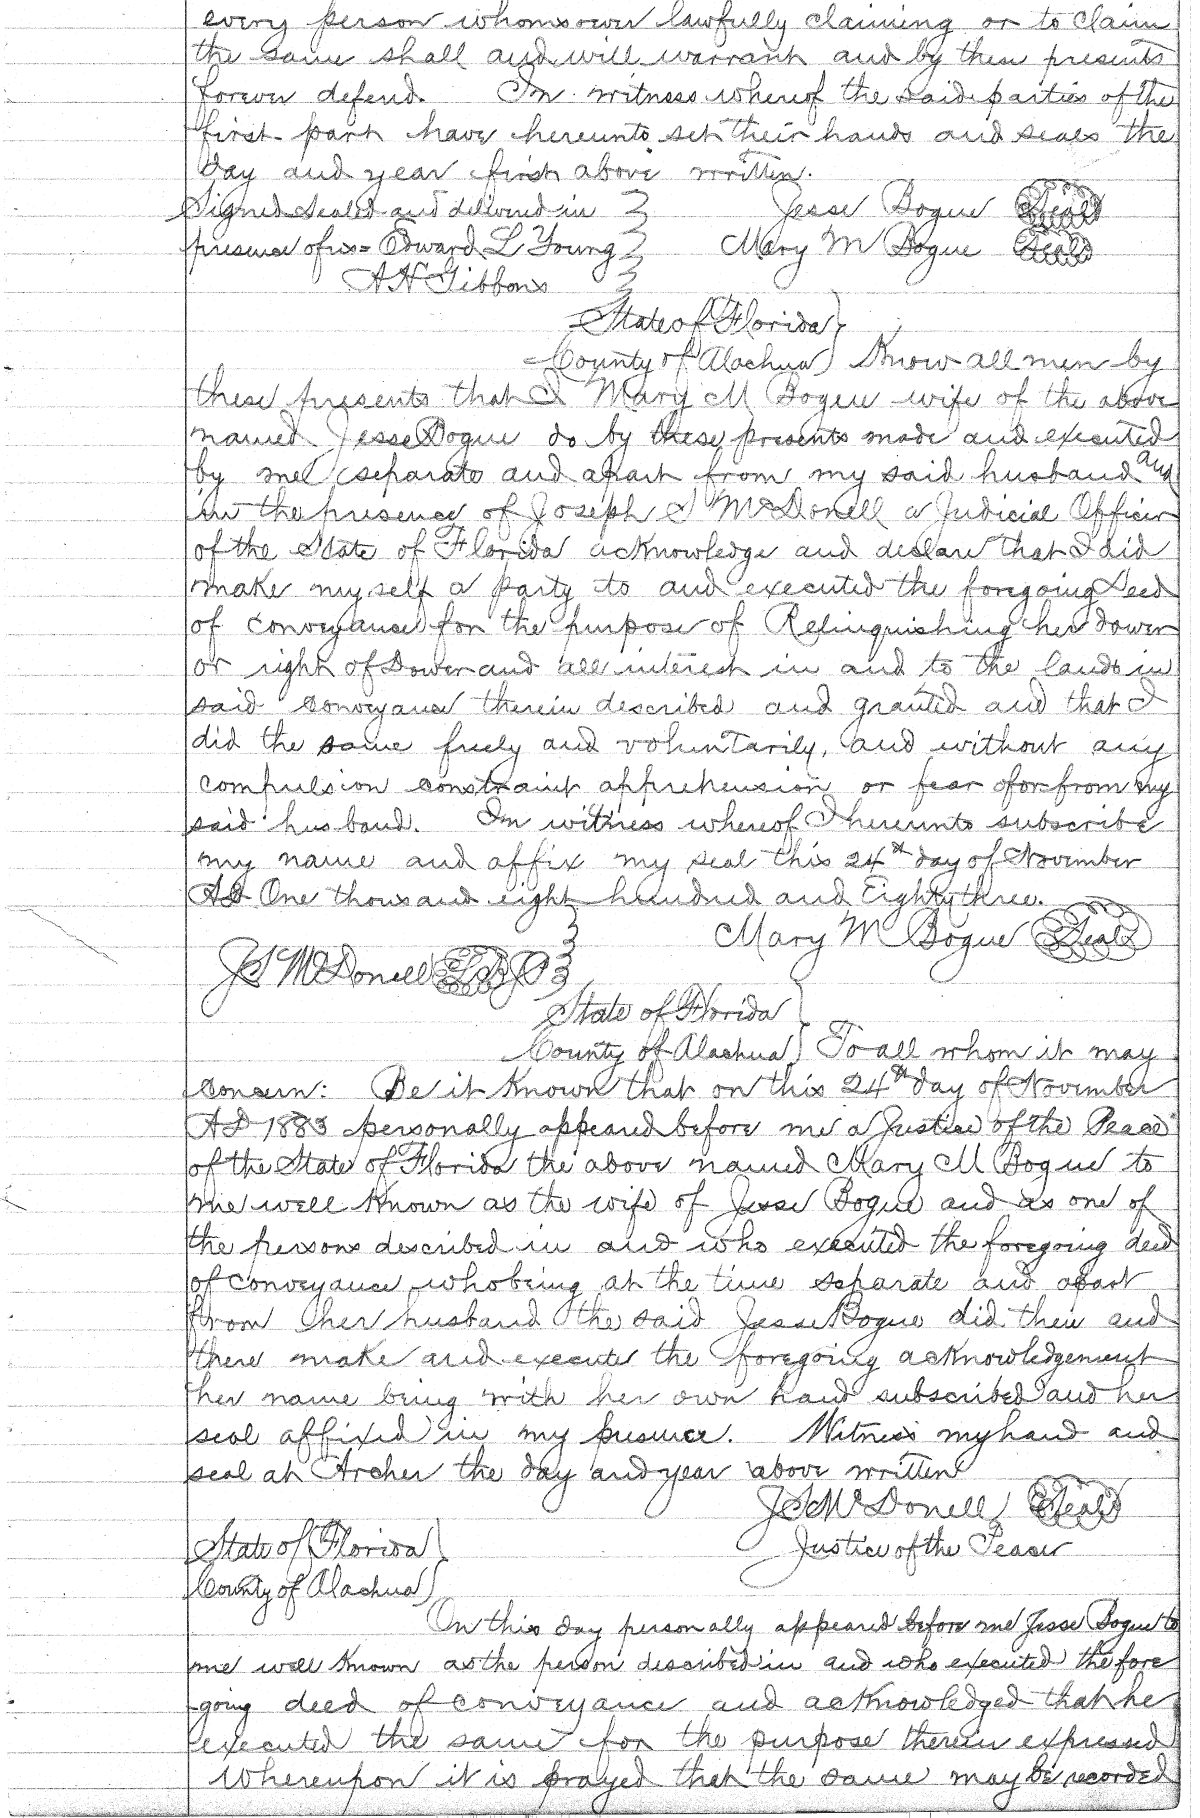 every person whomsoever lawfully claiming or to claim
the same shall and will warrant and by these presents
forever defend. In witness whereof the said parties of the
first part have hereunto set their hands and seals the
day and year first above written.
Signed Sealed and delivered in Jesse Bogue Seal
presence of us = Edward L Young Mary M Bogue Seal
A H Gibbons
State of Florida
County of Alachua Know all men by
these presents that I Mary M Bogue wife of the above
named Jesse Bogue do by these presents made and executed
by me separate and apart from my said husband and
in the presence of Joseph S McDonell a Judicial Officer
of the State of Florida acknowledge and declare that I did
make myself a party to and executed the foregoing Deed
of conveyance for the purpose of Relinquishing her dower
or right of Dower and all interest in and to the lands in
said conveyance therein described and granted and that I
did the same freely and voluntarily, and without any
compulsion constraint apprehension or fear of or from my
said husband. In witness whereof I hereunto subscribe
my name and affix my seal this 24th day of November
AD One thousand eight hundred and Eighty three.
Mary M Bogue Seal
J S McDonell
State of Florida
County of Alachua To all whom it may
concern: Be it Known that on this 24th day of November
AD 1883 personally appeared before me a Justice of the Peace
of the State of Florida the above named Mary M Bogue to
me well Known as the wife of Jesse Bogue and as one of
the persons described in and who executed the foregoing deed
of conveyance who being at the time separate and apart
from her husband the said Jesse Bogue did then and
there make and execute the foregoing acknowledgement
her name being with her own hand subscribed and her
seal affixed in my presence. Witness my hand and
seal at Archer the day and year above written
J S McDonell Seal
State of Florida Justice of the Peace
County of Alachua
On this day personally appeared before me Jesse Bogue to
me well Known as the person described in and who executed the fore
going deed of conveyance and acknowledged that he
executed the same for the purpose therein expressed
Whereupon it is prayed that the same may be recorded